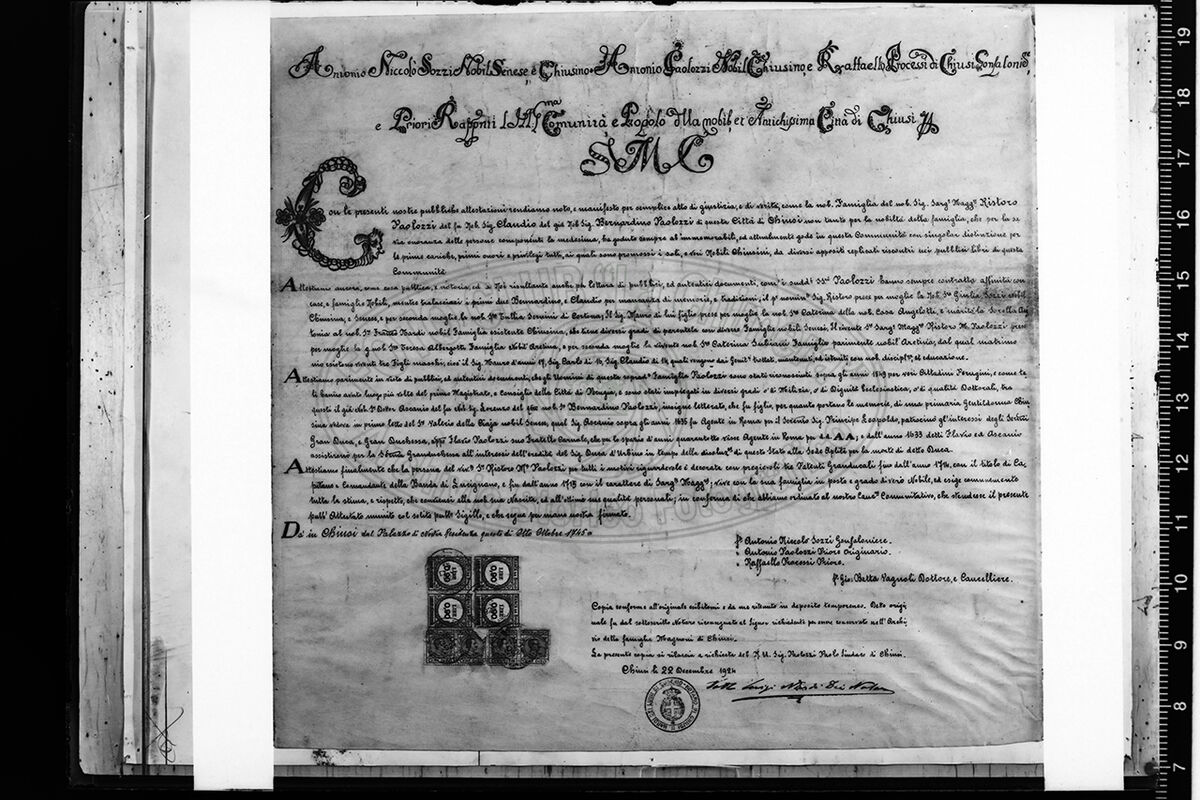 Antonio Niccolo Sozzi Nobil Senese, e Chiusino Antonio Paolozzi Nobil Chiusino, e Raffaello Processi di Chiusi Gonfalonie,
e Priori Rapp̃nti l'Ill̃ma Comunità e Popolo della nobil, et Antichissima Città di Chiusi
S M C
Con le presenti nostre pubbliche attestazioni rendiamo noto, e manifesto per semplice atto di giustizia, e di verità, come la nob. Famiglia del nob. Sig. Sarg. Magg. Ristoro
Paolozzi del fu Nob. Sig. Claudio del già Nob Sig. Bernardino Paolozzi di questa Città di Chiusi non tanto per la nobiltà della famiglia, che per la se
ria onoranza delle persone componenti la medesima, ha goduto sempre ab immemorabili, ed attualmente gode in questa Communità con singolar distinzione per
le prime cariche, primi onori e privilegi tutti, ai quali sono promossi i soli, e veri Nobili Chiusini, da diversi appositi replicati riscontri nei pubblici libri di questa
Communità
Attestiamo ancora, come cosa pubblica, e notoria, ed a Noi risultante anche per lettura di pubblici, ed autentici documenti, com' i sudd̃i SSri Paolozzi hanno sempre contratto affinità con
case, e famiglie Nobili, mentre tralasciati i primi due Bernardino, e Claudio per mancanza di memorie, e tradizioni, il p° nomin° Sig. Ristoro prese per moglie la Nob. Sra Giulia Sozzi nobil
Chiusina, e Senese, e per seconda moglie la nob. Sra Tullia Sernini di Cortona; Il Sig. Mauro di lui figlio prese per moglie la nob. Sra Caterina della nob. Casa Angelotti, e maritò la Sorella An
tonia al nob. Sr Nardi nobil Famiglia esistente Chiusina, che tiene diversi gradi di parentela con diverse Famiglie nobili Senesi. Il vivente Sr Sarg. Magg. Ristoro M. Paolozzi prese
per moglie la q. nob Sra Teresa Albergotti Famiglia Nobil' Aretina, e per seconda moglie la vivente nob. Sra Caterina Subiani Famiglia parimente nobil' Aretina, dal qual matrimo
nio esistono viventi tre Figli maschi, cioè il Sig. Mauro d'anni 17, Sig. Carlo di 16, Sig. Claudio di 14, quali vengono dai Genit. trattati, mantenuti, ed istruiti con nob. discipl., ed educazione.
Attestiamo parimente in vista di pubblici, ed autentici documenti, che gli Uomini di questa soprad° Famiglia Paolozzi sono stati riconosciuti sopra gli anni 1549 per veri Cittadini Perugini, e come ta
li hanno avuto luogo più volte del primo Magistrato, e Consiglio della Città di Perugia, e sono stati impiegati in diversi gradi o' di Milizia, o' di Dignità Ecclesiastica, o' di qualità Dottorali, tra
questi il già Nob. Sr Dottor Ascanio del fu Nob. Sig. Lorenzo del nob. Sr Bernardino Paolozzi, insigne letterato, che fu figlio, per quanto portano le memorie, di una primaria Gentildonna Chiu
sina vedova in primo letto del Sr Valerio della Ciaja nobil Senese, qual Sig. Ascanio sopra gli anni 1635 fu Agente in Roma per il Sereniss° Sig. Principe Leopoldo, patrocinò gl'interessi degli Sereniss.
Gran Duca, e Gran Duchessa, Flavio Paolozzi suo Fratello Carnale, che per lo spazio d'anni quarantotto visse Agente in Roma per d.d. AA; e dall'anno 1633 detti Flavio ed Ascanio
assistirono per la Granduchessa all'interessi dell'eredità del Sig. Duca d'Urbino in tempo della di questo Stato alla Sede Aplica per la morte di detto Duca.
Attestiamo finalmente che la persona del Sr Ristoro M. Paolozzi per tutti i motivi riguardevole è decorata con pregievoli tre Patenti Granducali fino dall'anno 1714, con il titolo di Ca-
pitano e Comandante della Banda di Lucignano, e fin dall'anno 1715 con il carattere di Sarg. Magg.; vive con la sua famiglia in posto e grado di vero Nobile, ed esige comunemente
tutta la stima, e rispetto, che convienesi alla nob sua Nascita, ed all'ottime sue qualità personali; in conforma di che abbiamo ordinato al nostro Comunitativo, che stendesse il presente
pubb° Attestato munito col solito pubb. Sigillo, e che segue per mano nostra firmato.
Da' in Chiusi dal Palazzo di Nostra Residenza questo dì Otto Ottobre 1745
Antonio Niccolo Sozzi Gonfaloniere.
Antonio Paolozzi Priore Originario.
Raffaello Processi Priore.
Gio: Batta Vagnoli Dottore, e Cancelliere.
Copia conforme all'originale esibitomi e da me ritenuto in deposito temporaneo. Detto origi
nale fu dal sottoscritto Notaro riconsegnato al Signor richiedente per essere conservato nell'Archi
vio della famiglia Magnoni di Chiusi.
La presente copia si rilascia a richiesta del N. U. Sig. Paolozzi Paolo Sindaco di Chiusi.
Chiusi li 22 Decembre 1924